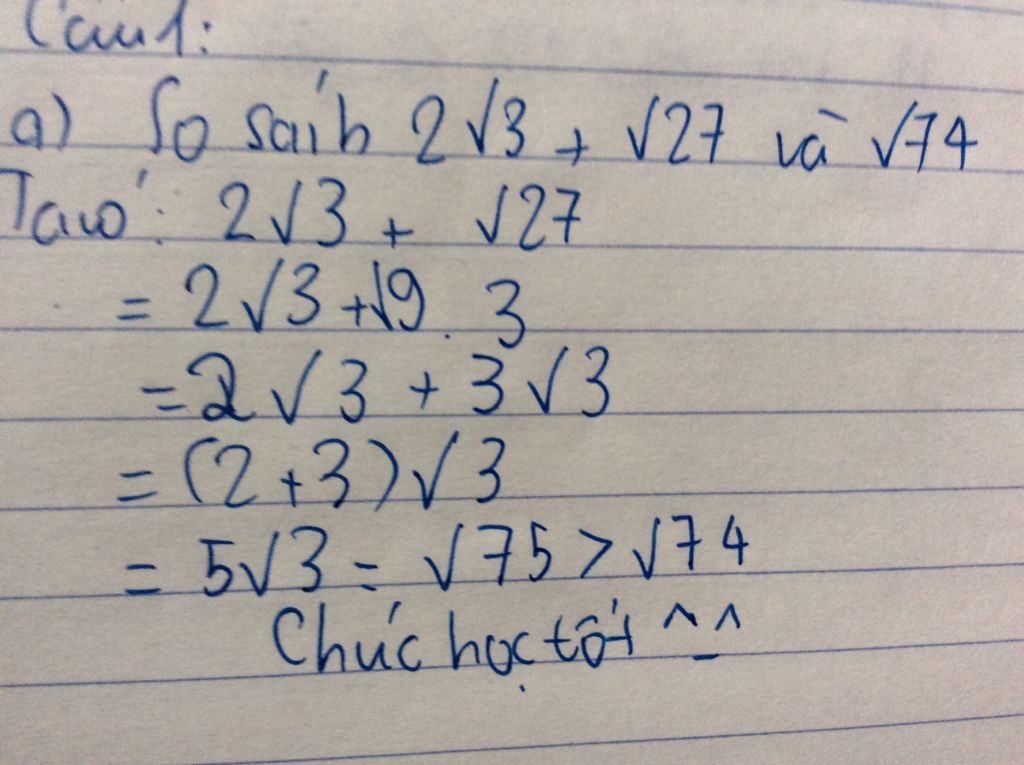 Câu 1:
a) So sánh 2√3 + √27 và √74
Ta có: 2√3 + √27
= 2√3 + √9.3
= 2√3 + 3√3
= (2+3)√3
= 5√3 = √75 > √74
Chúc học tốt ^_^